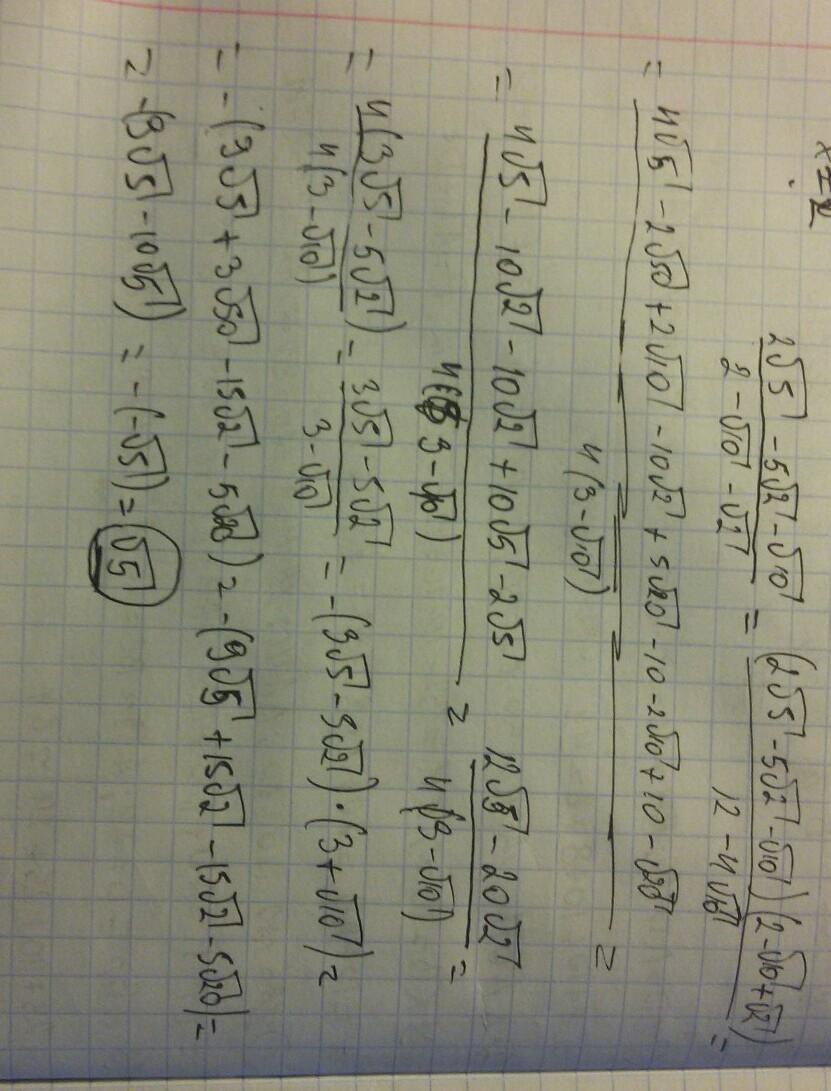 x = 2
\frac{2√5 - 5√2 - √10}{2 - √10 - √2} = \frac{(2√5 - 5√2 - √10)(2 - √10 + √2)}{12 - 4√10} =
= \frac{4√5 - 2√50 + 2√10 - 10√2 + 5√20 - 10 - 2√10 + 10 - √20}{4(3 - √10)} =
= \frac{4√5 - 10√2 - 10√2 + 10√5 - 2√5}{4(3 - √10)} = \frac{12√5 - 20√2}{4(3 - √10)} =
= \frac{4(3√5 - 5√2)}{4(3 - √10)} = \frac{3√5 - 5√2}{3 - √10} = -(3√5 - 5√2) · (3 + √10) =
= -(9√5 + 3√50 - 15√2 - 5√20) = -(9√5 + 15√2 - 15√2 - 5√20) =
= -(9√5 - 10√5) = -(-√5) = √5